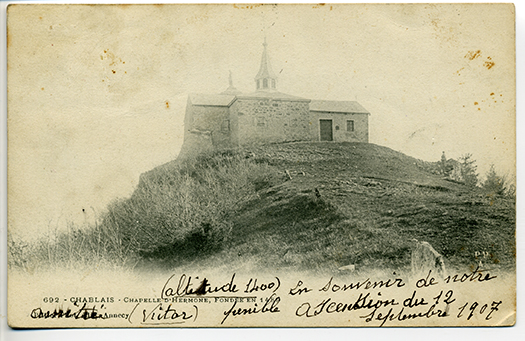 (altitude 1400) En Souvenir de notre
692 - CHABLAIS - CHAPELLE D'HERMONE, FONDÉE EN
pénible Ascension du 12
Annecy (Victor) Septembre 1907
amitié